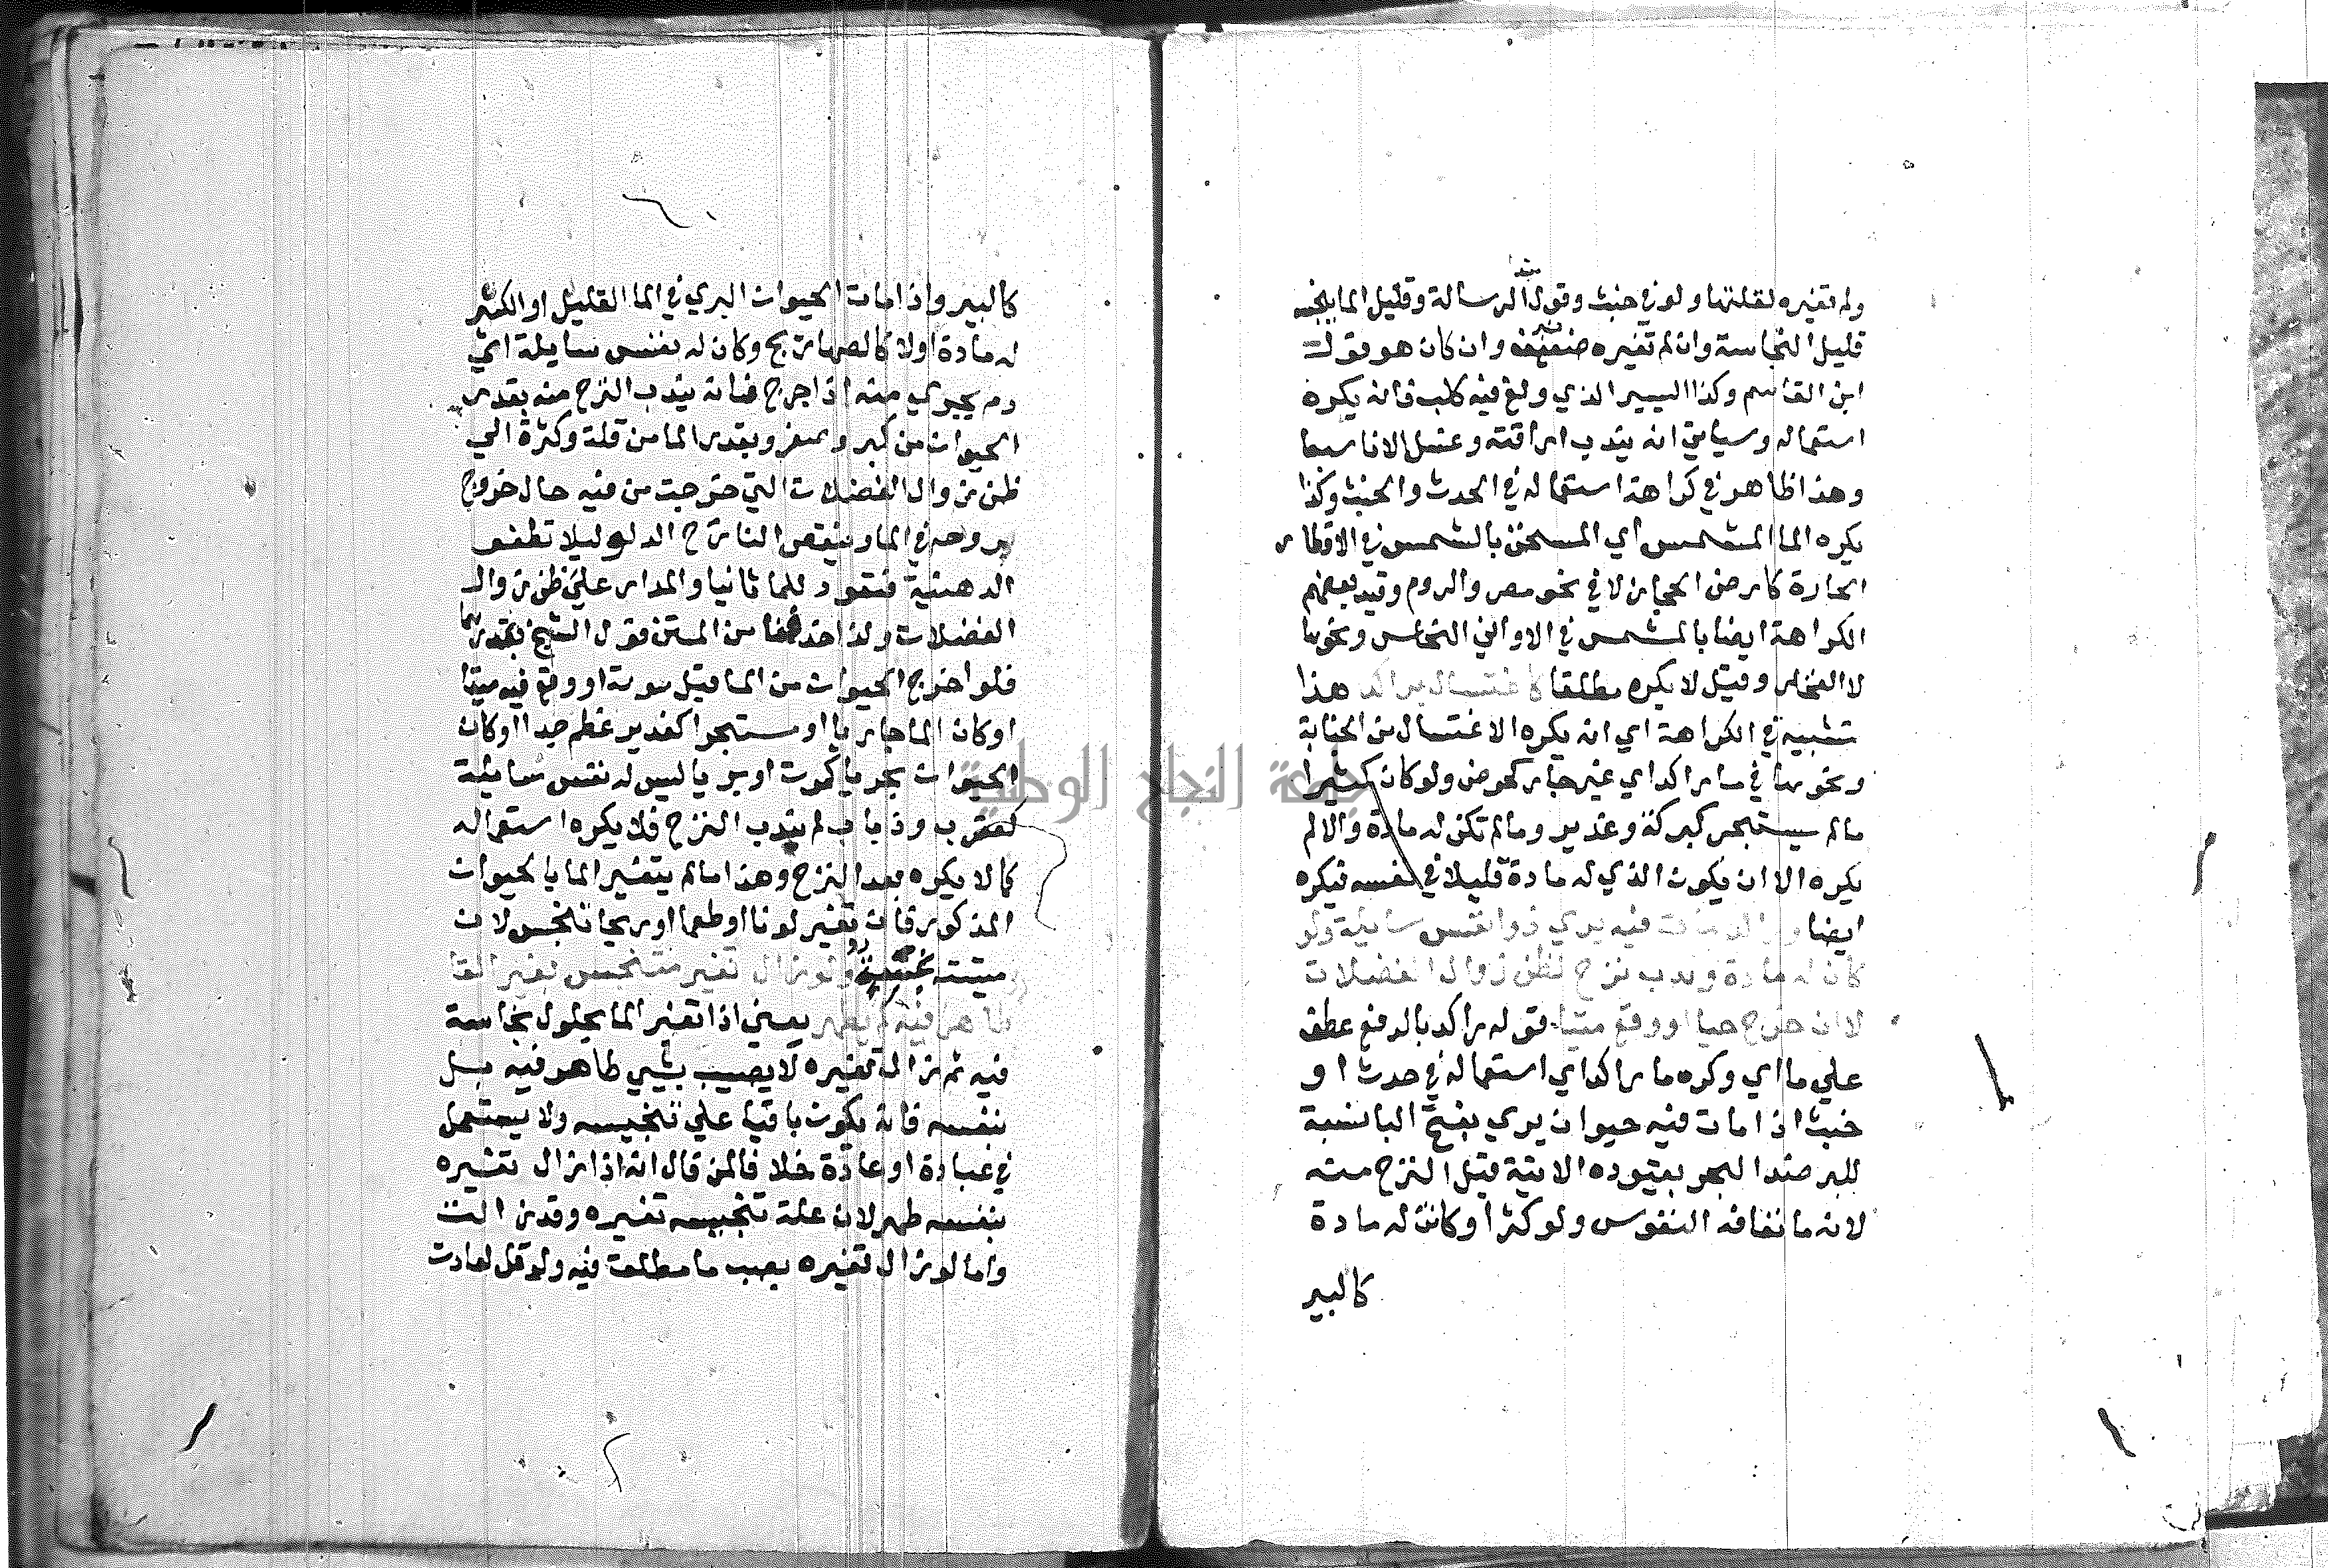 ولم تغيره لقلتها ولو في خبث وقول الرسالة وقليل الما ينجسه
قليل النجاسة وان لم تغيره ضعيف وان كان هو قول
ابن القاسم وكذا اليسير الذي ولغ فيه كلب فانه يكره
استعماله وسياتي انه يندب اراقته وغسل الانا سبعا
وهذا ظاهر في كراهة استعماله في الحدث والخبث وكذا
يكره الما المشمس أي المسخن بالشمس في الاقطار
الحارة كارض الحجاز لا في نحو مصر والروم وقيد بعضهم
الكراهة ايضا بالمشمس في الاواني النحاس ونحوها
لا الفخار وقيل لا يكره مطلقا كاغتسال براكد هذا
تشبيه في الكراهة اي انه يكره الاغتسال من الجنابة
ونحوها في ما راكد اي غير جار كحوض ولو كان كثيرا
مالم يستبحر كبركة وغدير ومالم تكن له مادة والا لم
يكره الا ان يكون الذي له مادة قليلا في نفسه فيكره
ايضا وراكد مات فيه بري ذو نفس سائلة ولو
كان له مادة وندب نزح لظن زوال الفضلات
لا ان خرج حيا او وقع ميتا قوله راكد بالرفع عطف
علي ما اي وكره ما راكد اي استعماله في حدث او
خبث اذا مات فيه حيوان بري بفتح البا نسبة
للبر ضد البحر بقيوده الاتية قبل النزح منه
لانه ما تعافه النفوس ولو كثر أو كانت له مادة
كالبير
كالبير واذا مات الحيوان البري في الما القليل او الكثير
له مادة اولا كالصهاريج وكان له نفس سايلة اي
دم يجري منه اذا جرح فانه يندب النزح منه بقدر
الحيوان من كبر وصغر وبقدر الما من قلة وكثرة الي
ظن زوال الفضلات التي خرجت من فيه حال خروج
روحه في الما وينقص النازح الدلو ليلا تطفو
الدهنية فتعود للما ثانيا والمدار علي ظن زوال
الفضلات ولذا حذفنا من المتن قول الشيخ بقدرهما
فلو اخرج الحيوان من الما قبل موته او وقع فيه ميتا
او كان الما جاريا او مستبحرا كغدير عظم جدا او كان
الحيوان بحريا كحوت او بريا ليس له نفس سائلة
كعقرب وذباب لم يندب النزح فلا يكره استعماله
كما لا يكره بعد النزح وهذا مالم يتغير الما بالحيوان
المذكور فان تغير لونا او طعما او ريحا تنجس لان
ميتته نجسة ولو زال تغير متنجس بغير القا
طاهر فيه لم يطهر يعني اذا تغير الما بحلول نجاسة
فيه ثم زال تغيره لا بصب شي طاهر فيه بل
بنفسه فانه يكون باقيا علي تنجيسه ولا يستعمل
في عبادة او عادة خلافا لمن قال انه اذا زال تغيره
بنفسه طهر لان علة تنجيسه تغيره وقد زالت
واما لو زال تغيره بصب ما مطلق فيه ولو قل لعادت
جامعة النجاح الوطنية